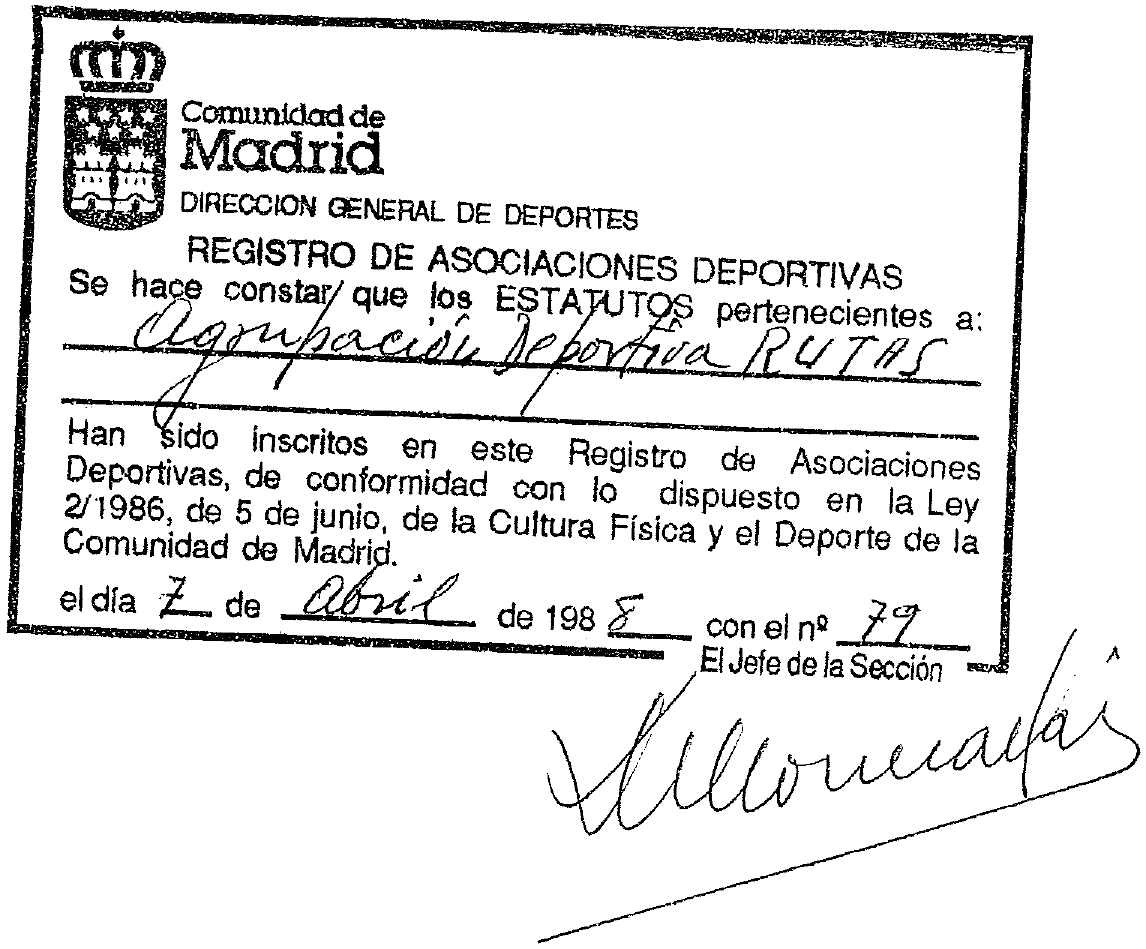 Comunidad de
Madrid
DIRECCION GENERAL DE DEPORTES
REGISTRO DE ASOCIACIONES DEPORTIVAS
Se hace constar que los ESTATUTOS pertenecientes a:
Agrupación Deportiva RUTAS
Han sido inscritos en este Registro de Asociaciones
Deportivas, de conformidad con lo dispuesto en la Ley
2/1986, de 5 de junio, de la Cultura Física y el Deporte de la
Comunidad de Madrid.
el día 7 de abril de 1988 con el nº 79
El Jefe de la Sección